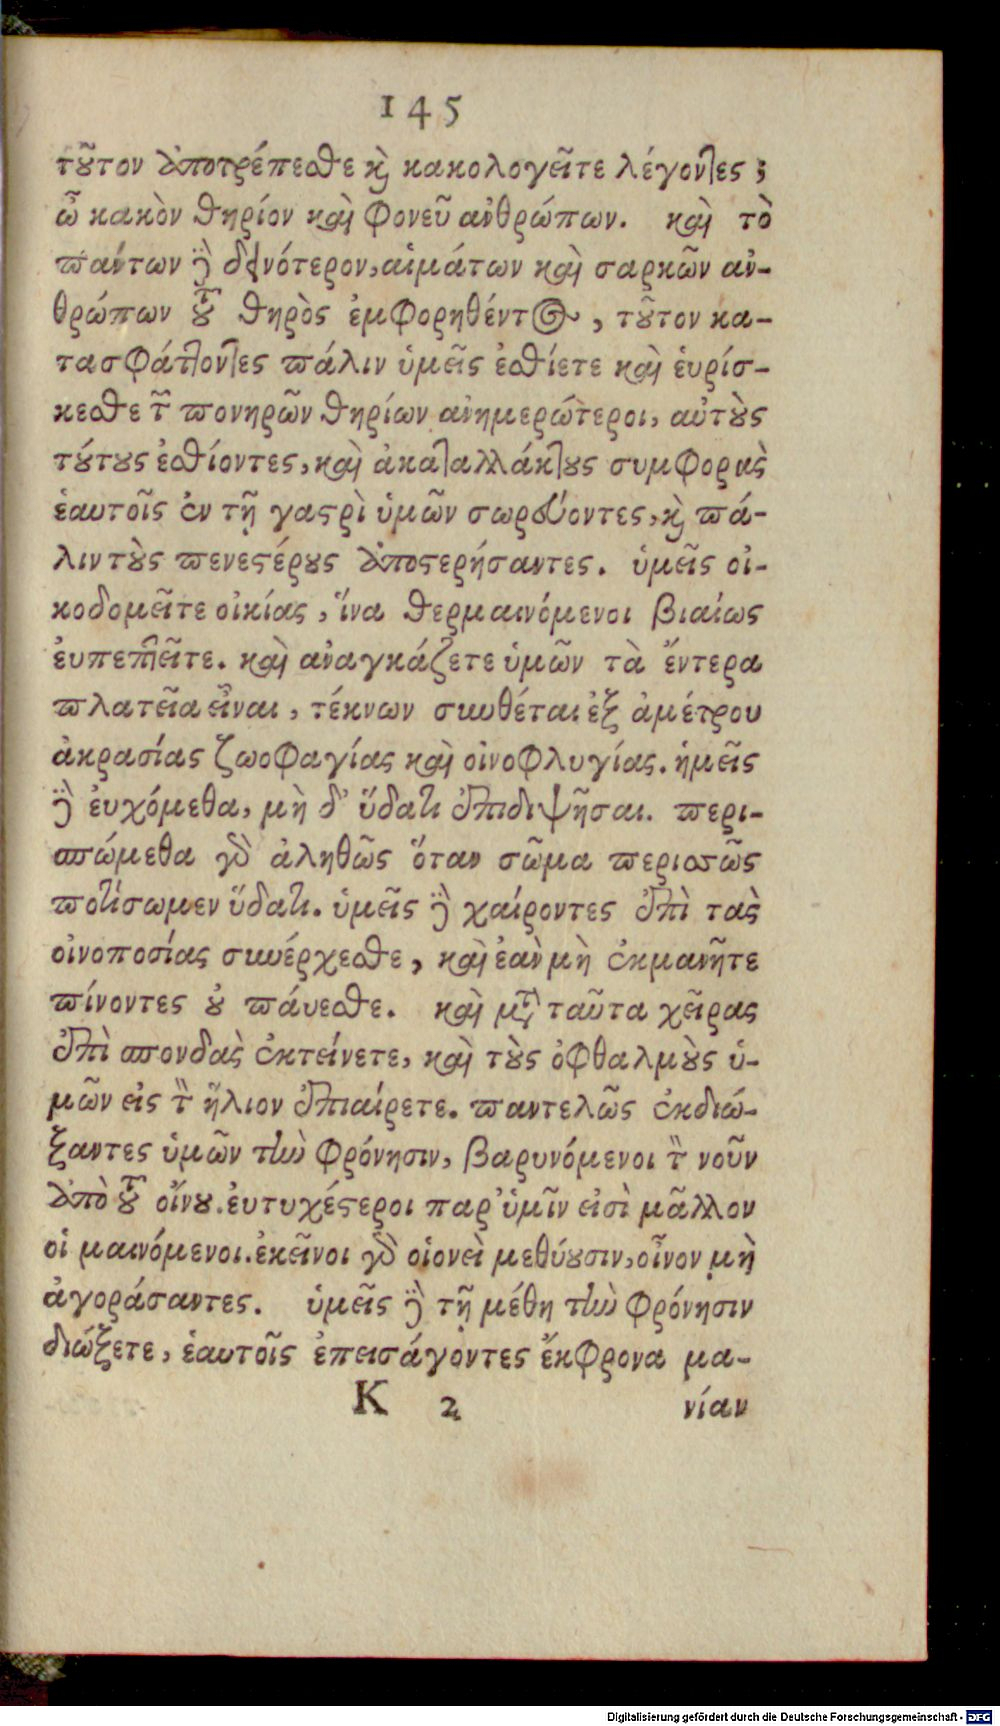 145
τοῦτον ἀποτρέπεσθε καὶ κακολογεῖτε λέγοντες ;
ὦ κακὸν θηρίον καὶ φονεῦ ἀνθρώπων. καὶ τὸ
πάντων δὲ δεινότερον, αἱμάτων καὶ σαρκῶν ἀν-
θρώπων τοῦ θηρὸς ἐμφορηθέντος, τοῦτον κα-
τασφάττοντες πάλιν ὑμεῖς ἐσθίετε καὶ εὑρίσ-
κεσθε τῶν πονηρῶν θηρίων ἀνημερώτεροι, αὐτοὺς
τούτους ἐσθίοντες, καὶ ἀκαταλλάκτους συμφορὰς
ἑαυτοῖς ἐν τῇ γαστρὶ ὑμῶν σωρεύοντες, καὶ πά-
λιν τοὺς πενεστέρους ἀποστερήσαντες. ὑμεῖς οἰ-
κοδομεῖτε οἰκίας, ἵνα θερμαινόμενοι βιαίως
ἐυπεπτεῖτε. καὶ ἀναγκάζετε ὑμῶν τὰ ἔντερα
πλατεῖα εἶναι, τέκνων συνθέται ἐξ ἀμέτρου
ἀκρασίας ζωοφαγίας καὶ οἰνοφλυγίας. ἡμεῖς
δὲ ἐυχόμεθα, μὴ δ' ὕδατι ἐπιδιψῆσαι. περι-
σπώμεθα γὰρ ἀληθῶς ὅταν σῶμα περισσῶς
ποτίσωμεν ὕδατι. ὑμεῖς δὲ χαίροντες ἐπὶ τὰς
οἰνοποσίας συνέρχεσθε, καὶ ἐὰν μὴ ἐκμανῆτε
πίνοντες οὐ πάυεσθε. καὶ μετὰ ταῦτα χεῖρας
ἐπὶ σπονδὰς ἐκτείνετε, καὶ τοὺς ὀφθαλμοὺς ὑ-
μῶν εἰς τὸν ἥλιον ἐπαίρετε. παντελῶς ἐκδιώ-
ξαντες ὑμῶν τὴν φρόνησιν, βαρυνόμενοι τὸν νοῦν
ἀπὸ τοῦ οἴνου. ἐυτυχέστεροι παρ' ὑμῖν εἰσὶ μᾶλλον
οἱ μαινόμενοι. ἐκεῖνοι γὰρ οἱονεὶ μεθύουσιν, οἶνον μὴ
ἀγοράσαντες. ὑμεῖς δὲ τῇ μέθῃ τὴν φρόνησιν
διώξετε, ἑαυτοῖς ἐπεισάγοντες ἔκφρονα μα-
K 2 νίαν
Digitalisierung gefördert durch die Deutsche Forschungsgemeinschaft - DFG